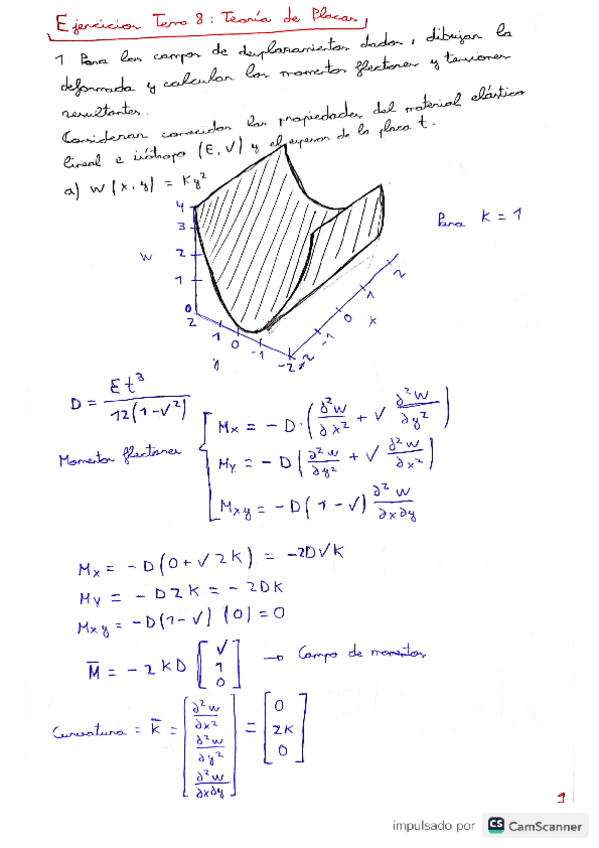 Ejercicios Tema 8: Teoría de Placas
1 Para los campos de desplazamientos dados, dibujar la
deformada y calcular los momentos flectores y tensiones
resultantes.
Considerar conocidas las propiedades del material elástico
lineal e isótropo (E, ν) y el espesor de la placa t.
a) w(x, y) = Ky²
Para K = 1
4
3
2
1
0
w
2
1
0
-1
-2
y
-2
-1
0
1
2
x
D = Et³ / 12(1-ν²)
Momentos flectores
Mx = -D·(∂²w/∂x² + ν ∂²w/∂y²)
My = -D(∂²w/∂y² + ν ∂²w/∂x²)
Mxy = -D(1-ν) ∂²w/∂x∂y
Mx = -D(0+ν2K) = -2DνK
My = -D2K = -2DK
Mxy = -D(1-ν)(0) = 0
M̄ = -2KD [ν 1 0] → Campo de momentos
Curvatura = k̄ = [∂²w/∂x² ∂²w/∂y² ∂²w/∂x∂y] = [0 2K 0]
1
impulsado por CS CamScanner